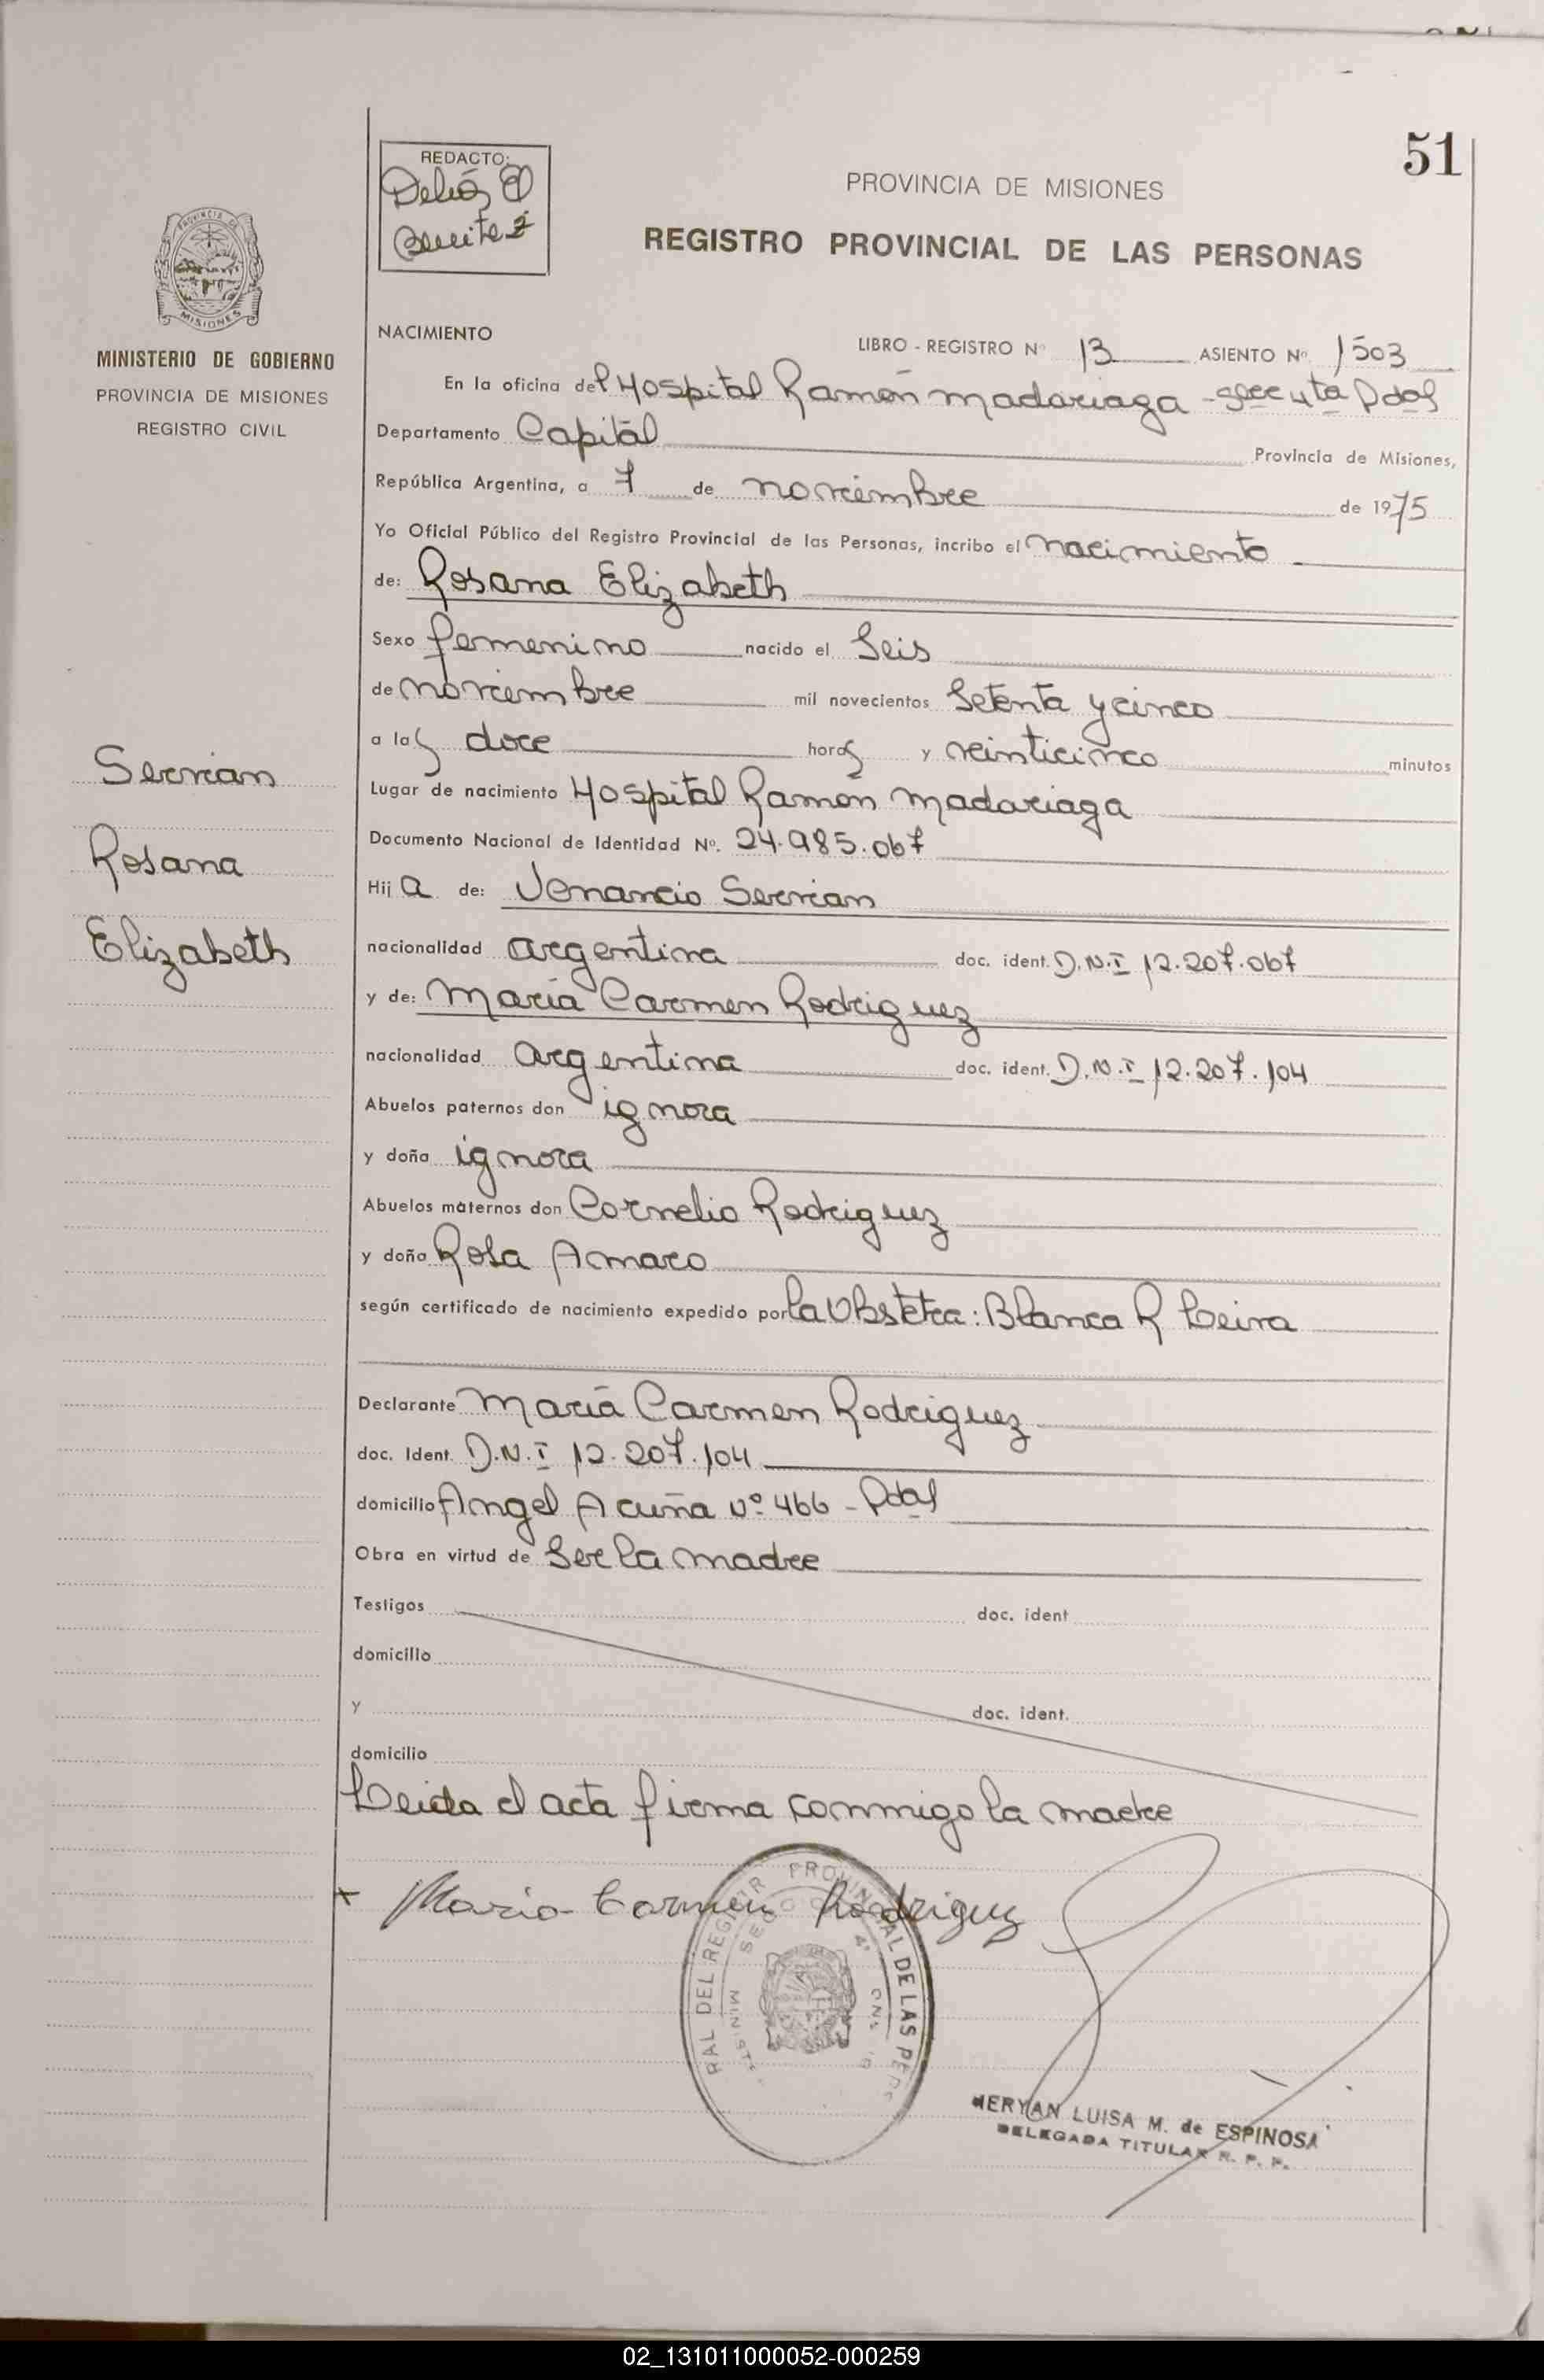 51
REDACTO:
Benitez
PROVINCIA DE MISIONES
REGISTRO PROVINCIAL DE LAS PERSONAS
PROVINCIA DE
MISIONES
MINISTERIO DE GOBIERNO
PROVINCIA DE MISIONES
REGISTRO CIVIL
NACIMIENTO
LIBRO - REGISTRO Nº 13 ASIENTO Nº 1503
En la oficina del Hospital Ramón Madariaga - Secc 4ta Pdas
Departamento Capital Provincia de Misiones,
República Argentina, a 7 de noviembre de 1975
Yo Oficial Público del Registro Provincial de las Personas, incribo el nacimiento
de: Rosana Elizabeth
Sexo femenino nacido el Seis
de noviembre mil novecientos Setenta y cinco
a las doce horas y veinticinco minutos
Lugar de nacimiento Hospital Ramón Madariaga
Documento Nacional de Identidad Nº. 24.985.067
Hija de: Venancio Servian
nacionalidad argentina doc. ident. D.N.I 12.207.067
y de: María Carmen Rodriguez
nacionalidad argentina doc. ident. D.N.I 12.207.104
Abuelos paternos don ignora
y doña ignora
Abuelos maternos don Cornelio Rodriguez
y doña Rosa Amaro
según certificado de nacimiento expedido por la Obstetra: Blanca R Leiva
Declarante María Carmen Rodriguez
doc. Ident. D.N.I 12.207.104
domicilio Angel Acuña Nº 466 - Pdas
Obra en virtud de Ser la madre
Testigos doc. ident
domicilio
y doc. ident.
domicilio
Leida el acta firma conmigo la madre
Servian
Rosana
Elizabeth
x Maria Carmen Rodriguez
RAL DEL REGISTR PROVINCIAL DE LAS PERS
LUISA M. de ESPINOSA
DELEGADA TITULAR R. P. P.
02_131011000052-000259